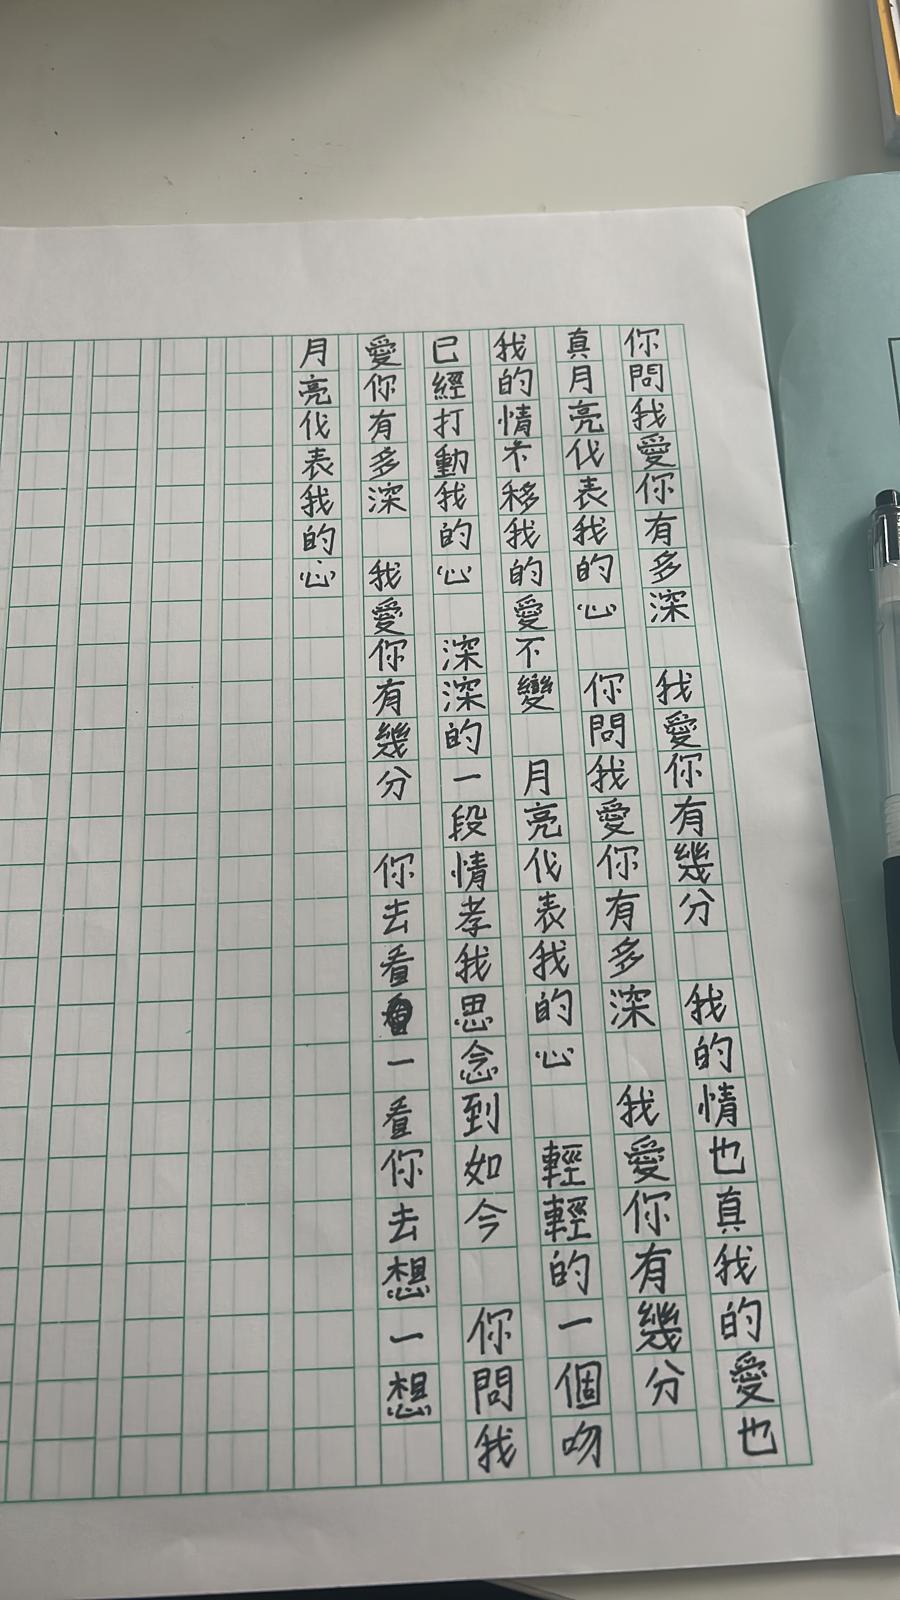 你問我愛你有多深　我愛你有幾分　我的情也真我的愛也
真月亮代表我的心　你問我愛你有多深　我愛你有幾分
我的情不移我的愛不變　月亮代表我的心　輕輕的一個吻
已經打動我的心　深深的一段情孝我思念到如今　你問我
愛你有多深　我愛你有幾分　你去看一看你去想一想
月亮代表我的心